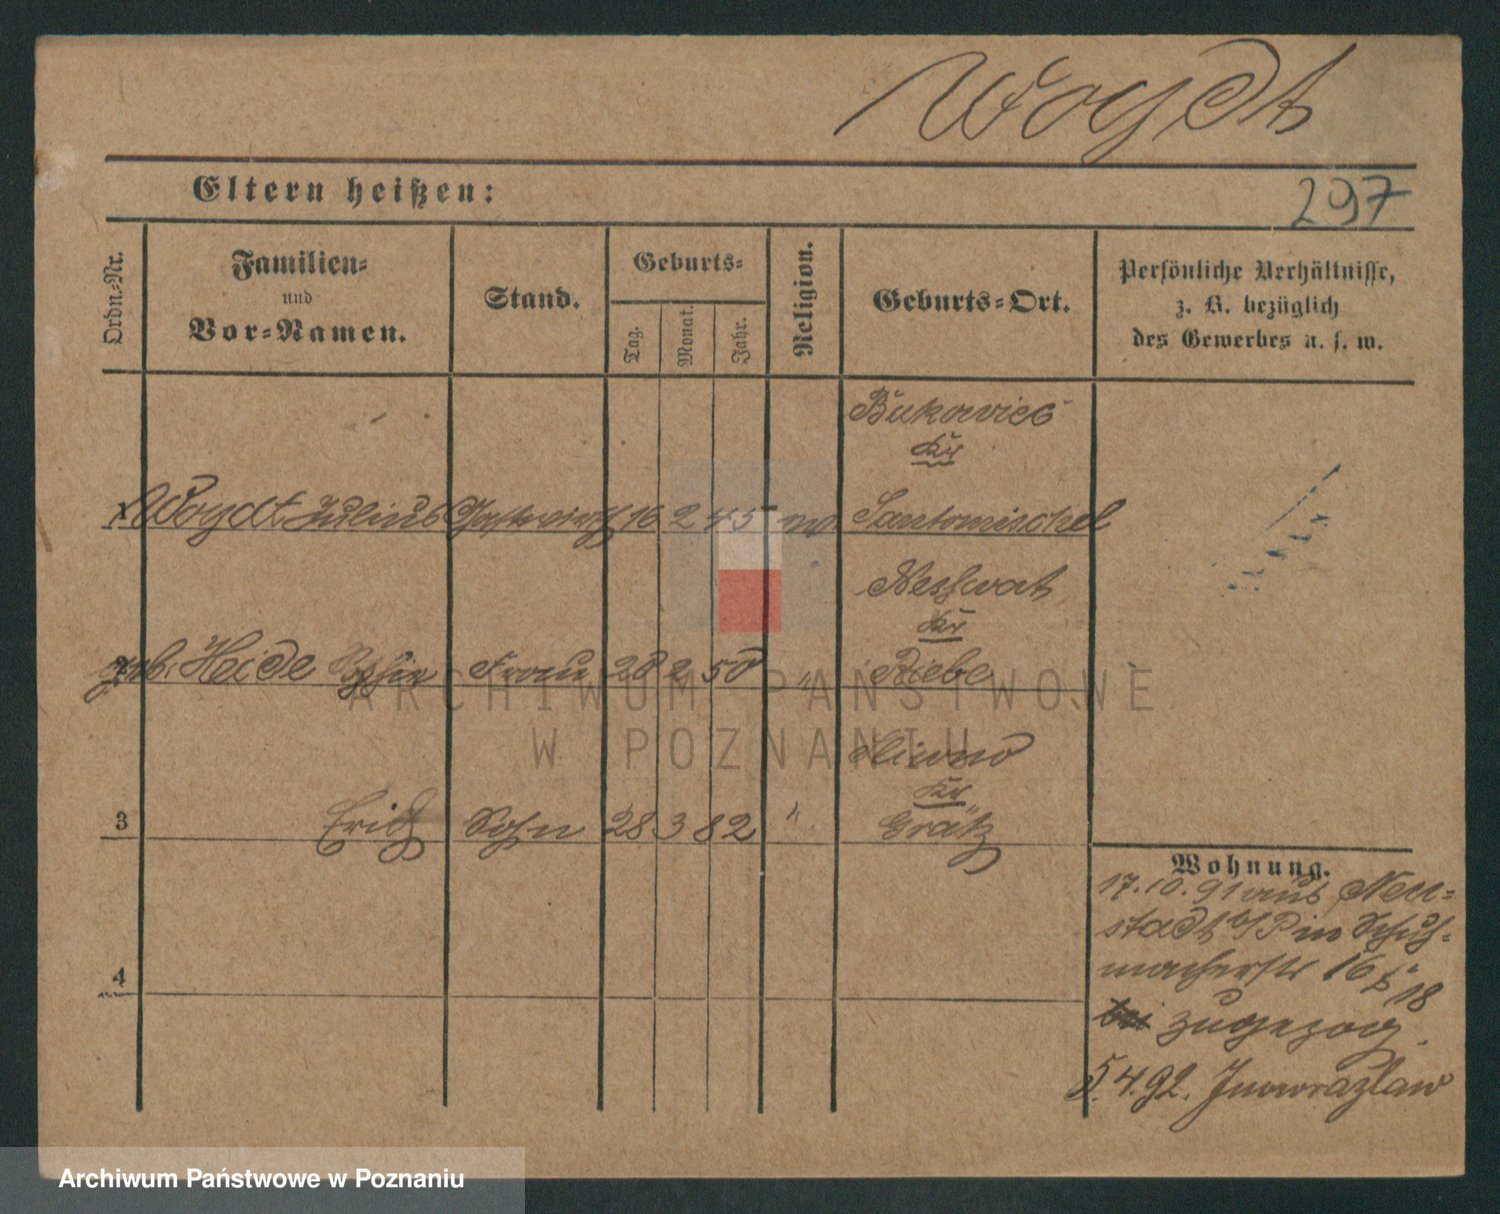 Woydt
Eltern heißen:
297
Ordn.-Nr.
Familien-
und
Vor-Namen.
Stand.
Geburts-
Tag.
Monat.
Jahr.
Religion.
Geburts-Ort.
Persönliche Verhältnisse,
z. B. bezüglich
des Gewerbes u. s. w.
Bukowiec
Kr
1 Woydt Julius Gastwirth 16 2 45 Santomischel
Kr
2 geb. Heide Frau 28 2 50 "
Kr
3 Erich Sohn 28 3 82 " Grätz
4
Wohnung.
17.10.91 aus Neu-
stadt b/P in Schuh-
macherstr 16
18
bei zugezog.
5.4.92. Inowrazlaw
ARCHIWUM PAŃSTWOWE
W POZNANIU
Archiwum Państwowe w Poznaniu